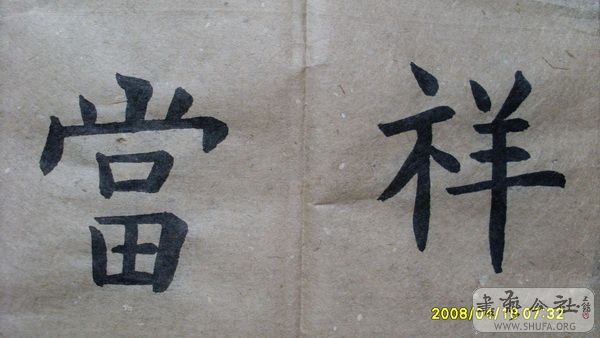 當祥
2008/04/ 07:32
書藝公社
WWW.SHUFA.ORG